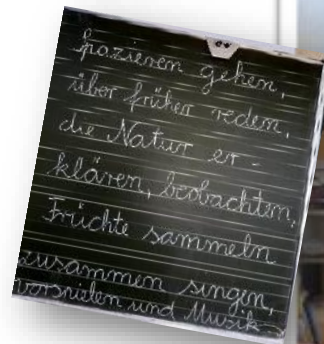 spazieren gehen,
über früher reden,
die Natur er-
klären, beobachten,
Früchte sammeln
zusammen singen,
vorspielen und Musik